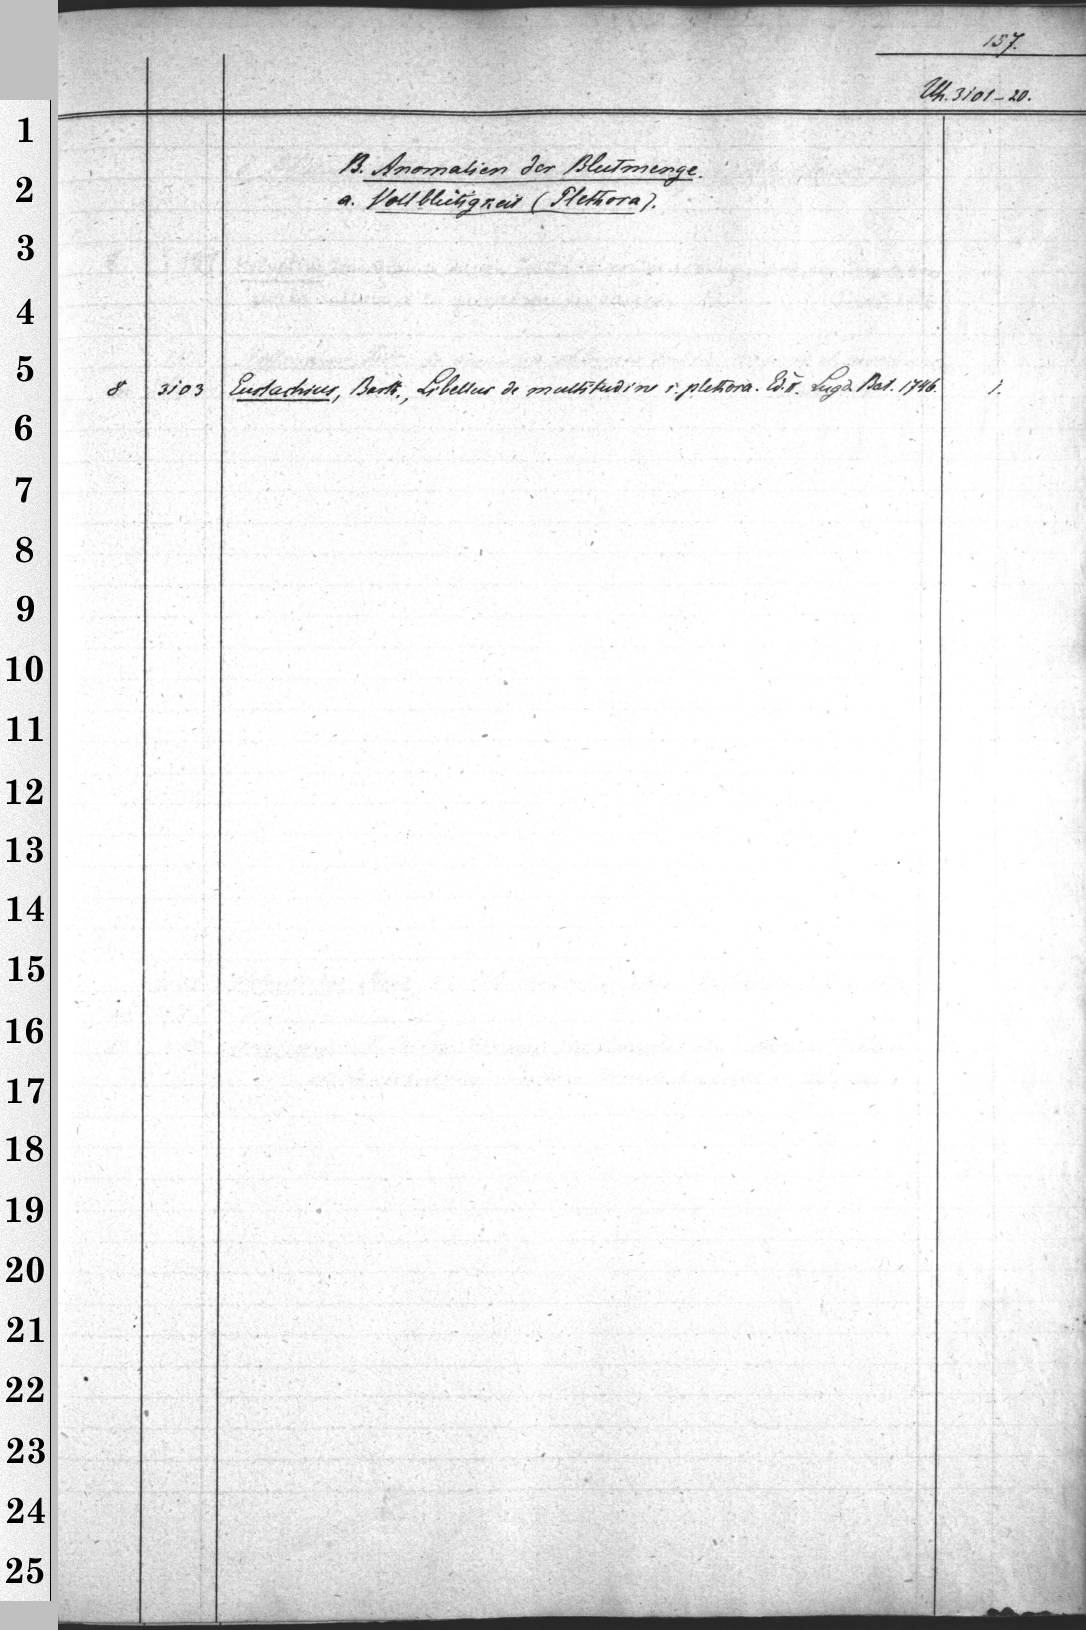 157.
Uh. 3101-20.
B. Anomalien der Blutmenge.
a. Vollblütigkeit (Plethora).
8 3103 Eustachius, Barth., Libellus de multitudine s. plethora. Ed. II. Lugd. Bat. 1746. 1.
1
2
3
4
5
6
7
8
9
10
11
12
13
14
15
16
17
18
19
20
21
22
23
24
25